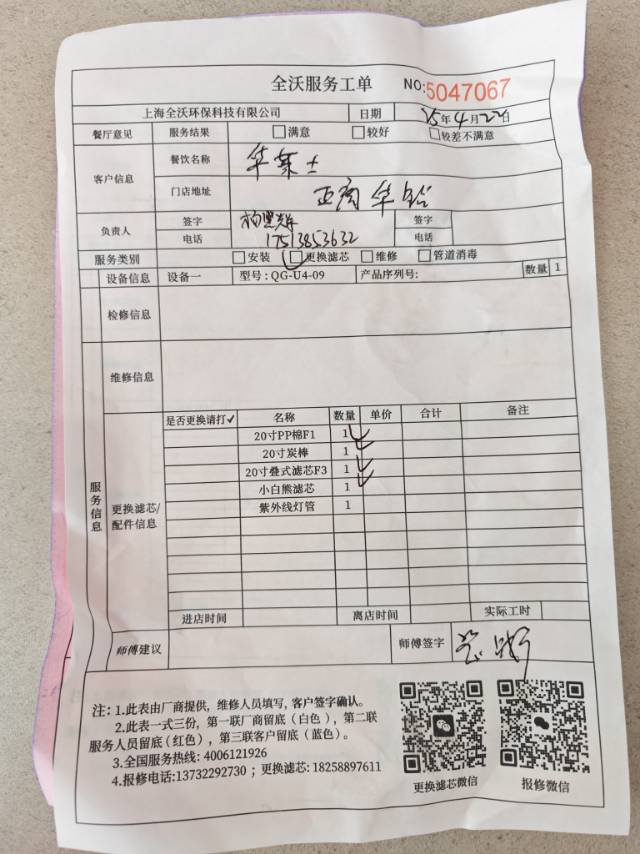 全沃服务工单 NO:5047067
上海全沃环保科技有限公司 日期 25年4月22日
餐厅意见 服务结果 满意 较好 较差不满意
客户信息 餐饮名称 华莱士
门店地址 正商华钻
负责人 签字 签字
电话 17513853632 电话
服务类别 安装 更换滤芯 维修 管道消毒
设备信息 设备一 型号:QG-U4-09 产品序列号: 数量 1
检修信息
维修信息
服务信息
更换滤芯/配件信息
是否更换请打✓ 名称 数量 单价 合计 备注
20寸PP棉F1 1 ✓
20寸炭棒 1 ✓
20寸叠式滤芯F3 1 ✓
小白熊滤芯 1 ✓
紫外线灯管 1
进店时间 离店时间 实际工时
师傅建议 师傅签字
注:1.此表由厂商提供,维修人员填写,客户签字确认。
2.此表一式三份,第一联厂商留底(白色),第二联
服务人员留底(红色),第三联客户留底(蓝色)。
3.全国服务热线:4006121926
4.报修电话:13732292730;更换滤芯:18258897611
更换滤芯微信 报修微信